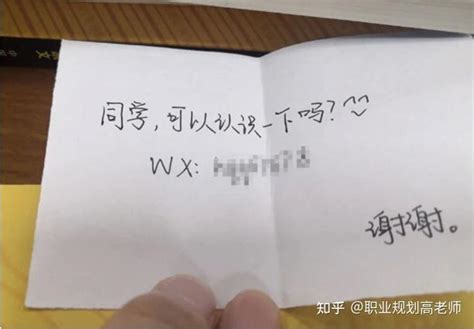 同学，可以认识一下吗？^^
WX：
谢谢。
知乎 @职业规划高老师